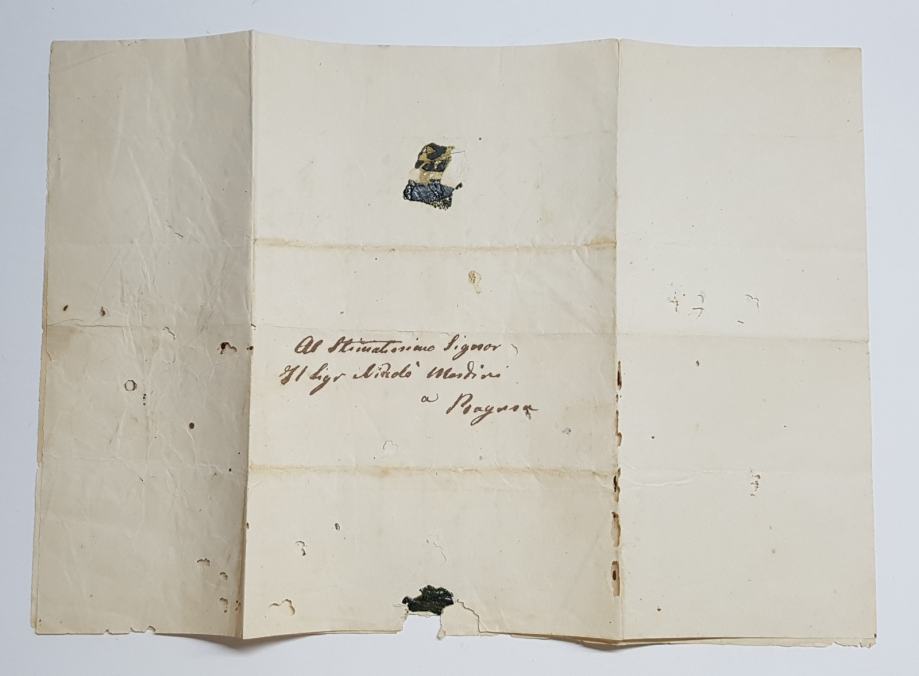 Al Stimatissimo Signor
Il Sigr Nicolò
a Ragusa